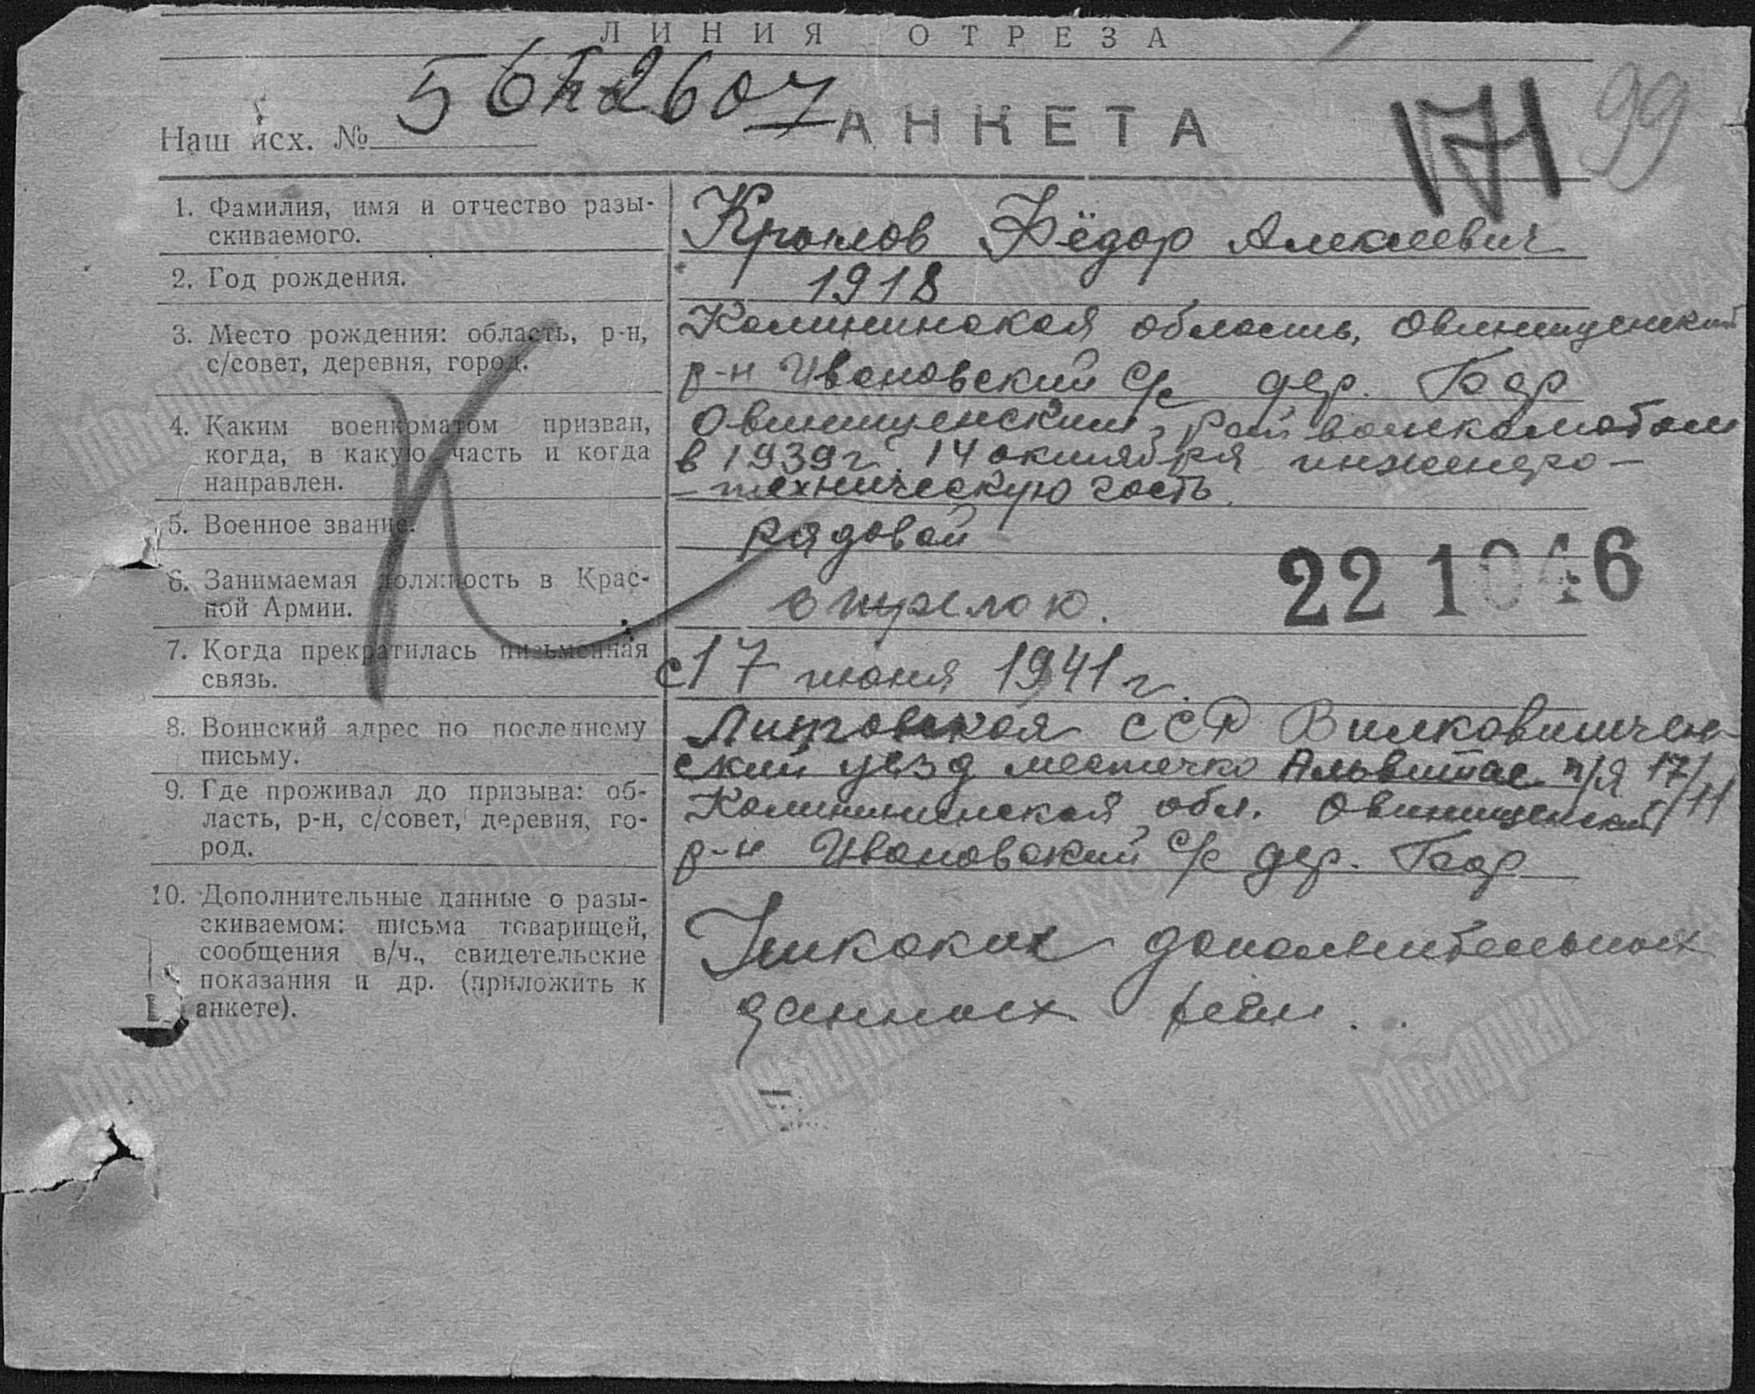 ЛИНИЯ ОТРЕЗА
Наш исх. №
АНКЕТА
171
99
1. Фамилия, имя и отчество разы-
скиваемого.
Крылов Фёдор Алексеевич
2. Год рождения.
1918
3. Место рождения: область, р-н,
с/совет, деревня, город.
Калининская область, Овинищенский
р-н Ивановский с/с дер. Бор
4. Каким военкоматом призван,
когда, в какую часть и когда
направлен.
Овинищенским Райвоенкоматом
в 1939 г. 14 октября инженеро-
-техническую часть.
5. Военное звание.
рядовой
6. Занимаемая должность в Крас-
ной Армии.
22 1046
7. Когда прекратилась письменная
связь.
с 17 июня 1941 г.
8. Воинский адрес по последнему
письму.
Литовская ССР Вилкавишчен-
ский уезд местечко Альвитас п/я 17/11
9. Где проживал до призыва: об-
ласть, р-н, с/совет, деревня, го-
род.
Калининская обл. Овинищенский
р-н Ивановский с/с дер. Бор
10. Дополнительные данные о разы-
скиваемом: письма товарищей,
сообщения в/ч., свидетельские
показания и др. (приложить к
анкете).
Никаких дополнительных
данных
Мемориал
Мемориал
Мемориал